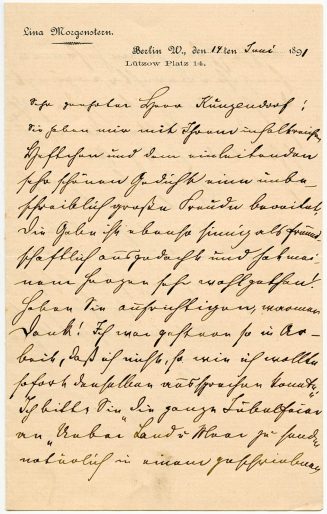 Lina Morgenstern.
Berlin W., den 14ten Juni 1891
Lützow Platz 14.
Sehr geehrter Herr Künzendorf!
Sie haben mir mit Ihrem inhaltreichen
Heftchen und dem einleitenden
sehr schönen Gedicht eine unbe-
schreiblich große Freude bereitet.
Die Gabe ist ebenso sinnig als freund
schaftlich ausgedacht und hat mei
nem Herzen sehr wohlgethan!
Haben Sie aufrichtigen, warmen
Dank! Ich war gestern so in Ar-
beit, daß ich nicht, so wie ich wollte
sofort denselben aussprechen konnte.
Ich bitte Sie die ganze Jubelfeier
an "Ueber Land u Meer zu send
natürlich in einem geschriebenen